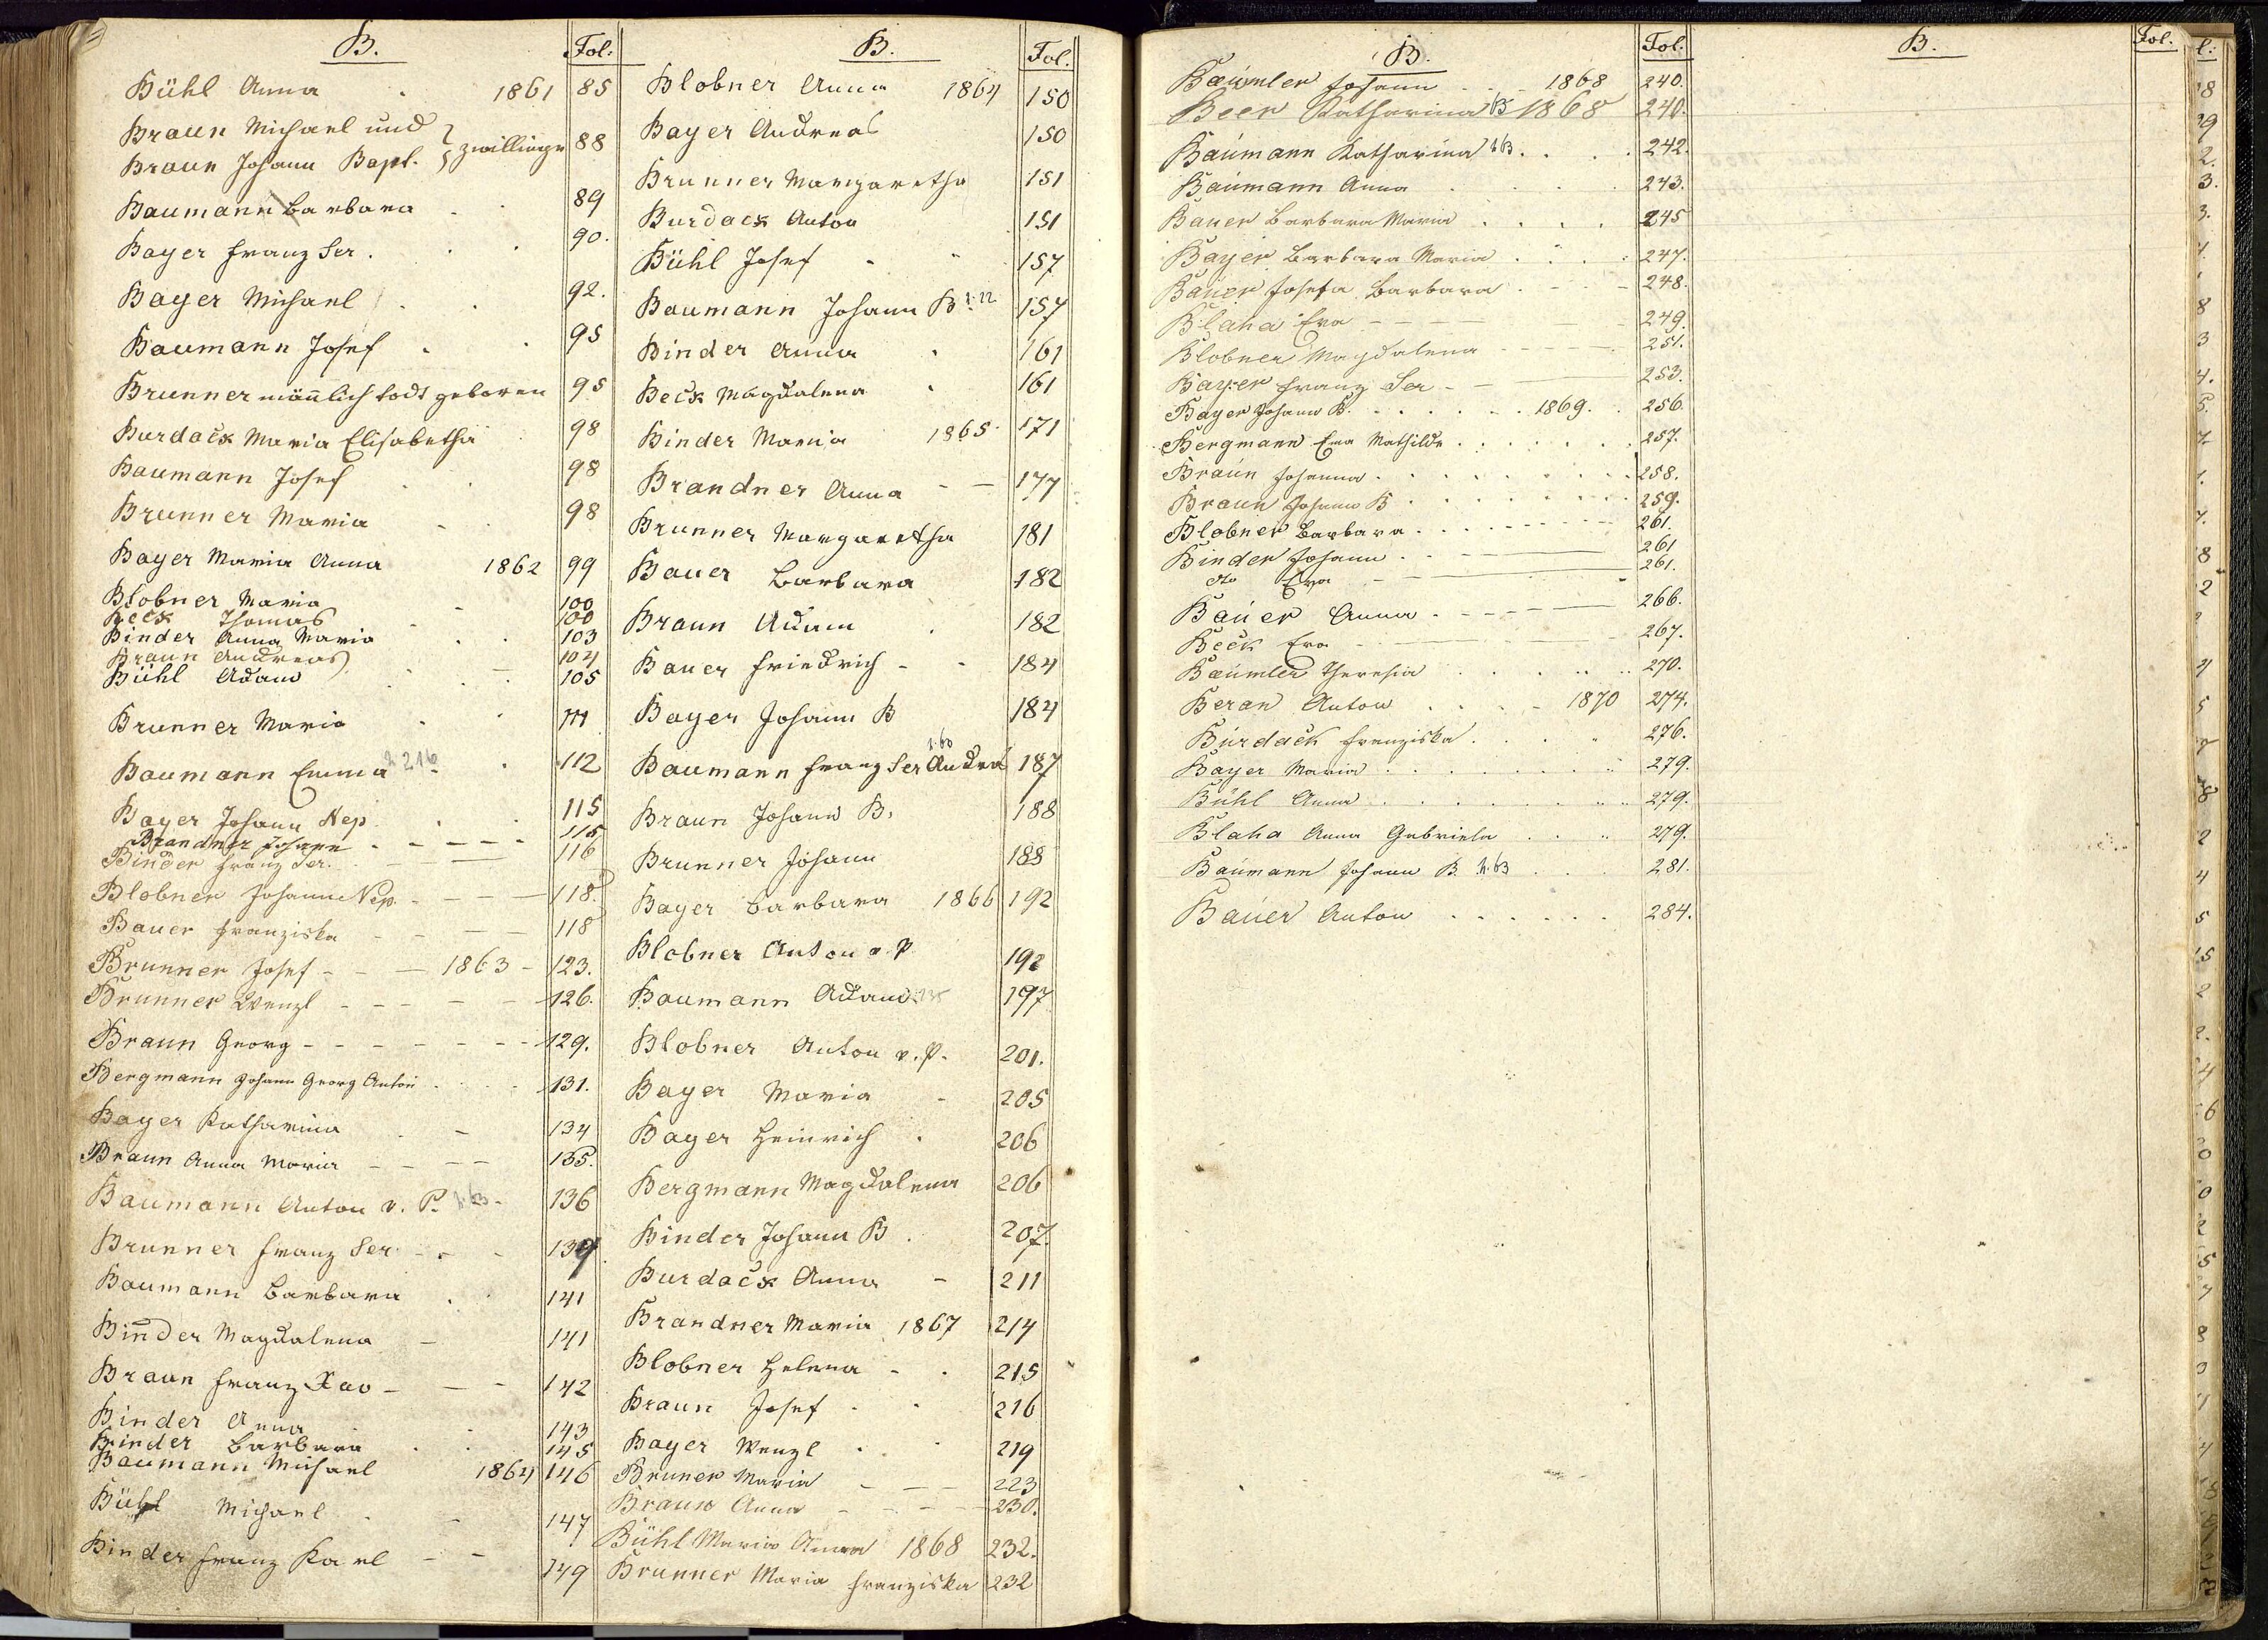 B. Fol:
Bühl Anna . 1861 85
Braun Michael und
Braun Johann Bapt. } Zwillinge 88
Baumann Barbara . . 89
Bayer Franz Ser. . . 90.
Bayer Michael . . 92.
Baumann Josef . . 95
Brunner mänlich todt geboren 95
Burdack Maria Elisabetha . 98
Baumann Josef . . 98
Brunner Maria . . 98
Bayer Maria Anna 1862 99
Blobner Maria - 100
Beck Thomas - 100
Binder Anna Maria . . 103
Braun Andreas 104
Bühl Adam . . 105
Brunner Maria . . 111
Baumann Emma . . 112
Bayer Johann Nep. . . 115
Brandner Johann - - - - - 115
Binder Franz Ser. - - 116
Blobner Johann Nep. - - - - 118.
Bauer Franziska - - - - 118
Brunner Josef - - - 1863 - 123.
Brunner Wenzl - - - - - 126.
Braun Georg - - - - - - - 129.
Bergmann Johann Georg Anton . . . . 131.
Bayer Katharina . - 134
Braun Anna Maria - - - - 135.
Baumann Anton v. P. 136
Brunner Franz Ser. - - - 139
Baumann Barbara . . 141
Binder Magdalena - 141
Braun Franz Xav - - - 142
Binder Anna 143
Binder Barbara . . 145
Baumann Michael 1864 146
Bühl Michael . - 147
Binder Franz Karl - - 149
B. Fol.
Blobner Anna 1864 150
Bayer Andreas 150
Brunner Margaretha 151
Burdack Anton 151
Bühl Josef - - 157
Baumann Johann B 157
Binder Anna . 161
Beck Magdalena . 161
Binder Maria 1865 171
Brandner Anna - - 177
Brunner Margaretha 181
Bauer Barbara 182
Braun Adam . 182
Bauer Friedrich - - 184
Bayer Johann B 184
Baumann Franz Ser Andrä 187
Braun Johann B. 188
Brunner Johann 188
Bayer Barbara 1866 192
Blobner Anton v. P. 192
Baumann Adam 197
Blobner Anton v. P. 201.
Bayer Maria - 205
Bayer Heinrich . 206
Bergmann Magdalena 206
Binder Johann B . 207.
Burdack Anna - 211
Brandner Maria 1867 214
Blobner Helena - . 215
Braun Josef . . 216
Bayer Wenzl . . 219
Bruner Maria - - - 223
Braun Anna - - - - 230.
Bühl Maria Anna 1868 232.
Brunner Maria Franziska 232
B. Fol.
Bäumler Johann . . . 1868 240.
Beer Katharina B 1868 240.
Baumann Katharina h.63 . . . . 242.
Baumann Anna . . . . 243.
Bauer Barbara Maria . . . . 245
Bayer Barbara Maria . . . . 247.
Bauer Josefa Barbara . - - - 248.
Blaha Eva - - - - 249.
Blobner Magdalena - - - - 251.
Bayer Franz Ser - - 253.
Bayer Johann B. . . . . . . 1869. . 256.
Bergmann Eva Mathilde . . . . . . 257.
Braun Johanna . . . . . . . . 258.
Braun Johann B . . . . . . . 259.
Blobner Barbara . . . - - - - 261.
Binder Johann . . - 261
dto Eva - - 261.
Bauer Anna . - - - - 266.
Beck Eva - 267.
Bäumler Theresia . . . . . 270.
Beran Anton . . . - 1870 274.
Burdack Franziska . . . . 276.
Bayer Maria . . . . . . . 279.
Bühl Anna . . . . . . . 279.
Blaha Anna Gabriela . . . 279.
Baumann Johann B. h.63 . . . 281.
Bauer Anton . . . . . . 284.
B. Fol.